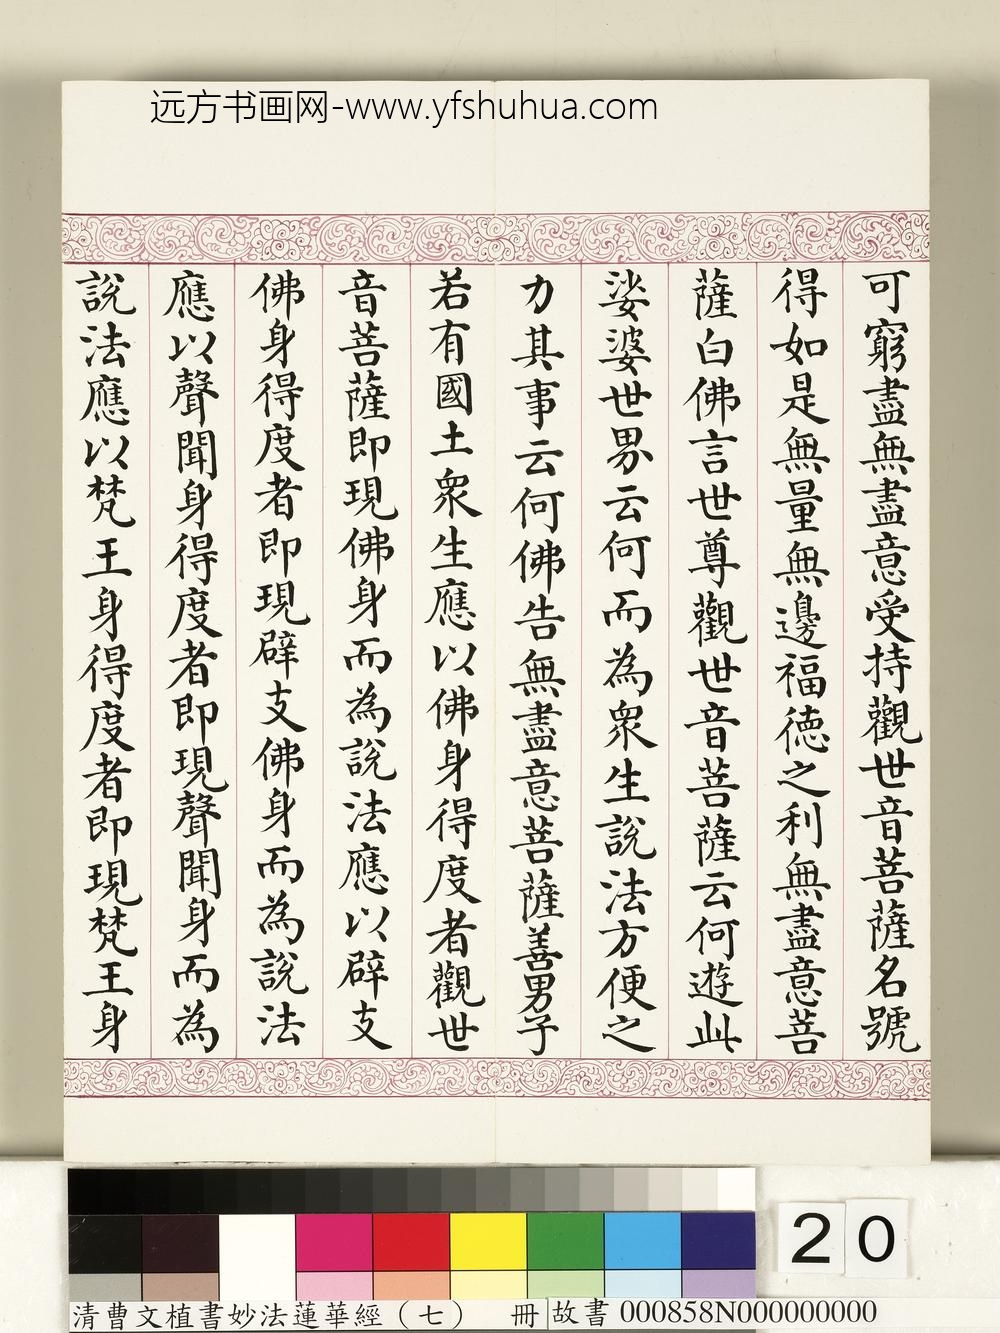 远方书画网-www.yfshuhua.com
可窮盡無盡意受持觀世音菩薩名號
得如是無量無邊福徳之利無盡意菩
薩白佛言世尊觀世音菩薩云何遊此
娑婆世界云何而為衆生說法方便之
力其事云何佛告無盡意菩薩善男子
若有國土衆生應以佛身得度者觀世
音菩薩即現佛身而為說法應以辟支
佛身得度者即現辟支佛身而為說法
應以聲聞身得度者即現聲聞身而為
說法應以梵王身得度者即現梵王身
20
清曹文植書妙法蓮華經（七） 冊 故書 000858N000000000